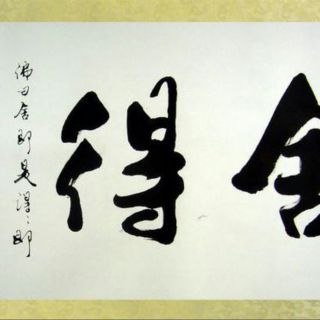 舍得
佛曰舍即是得得即